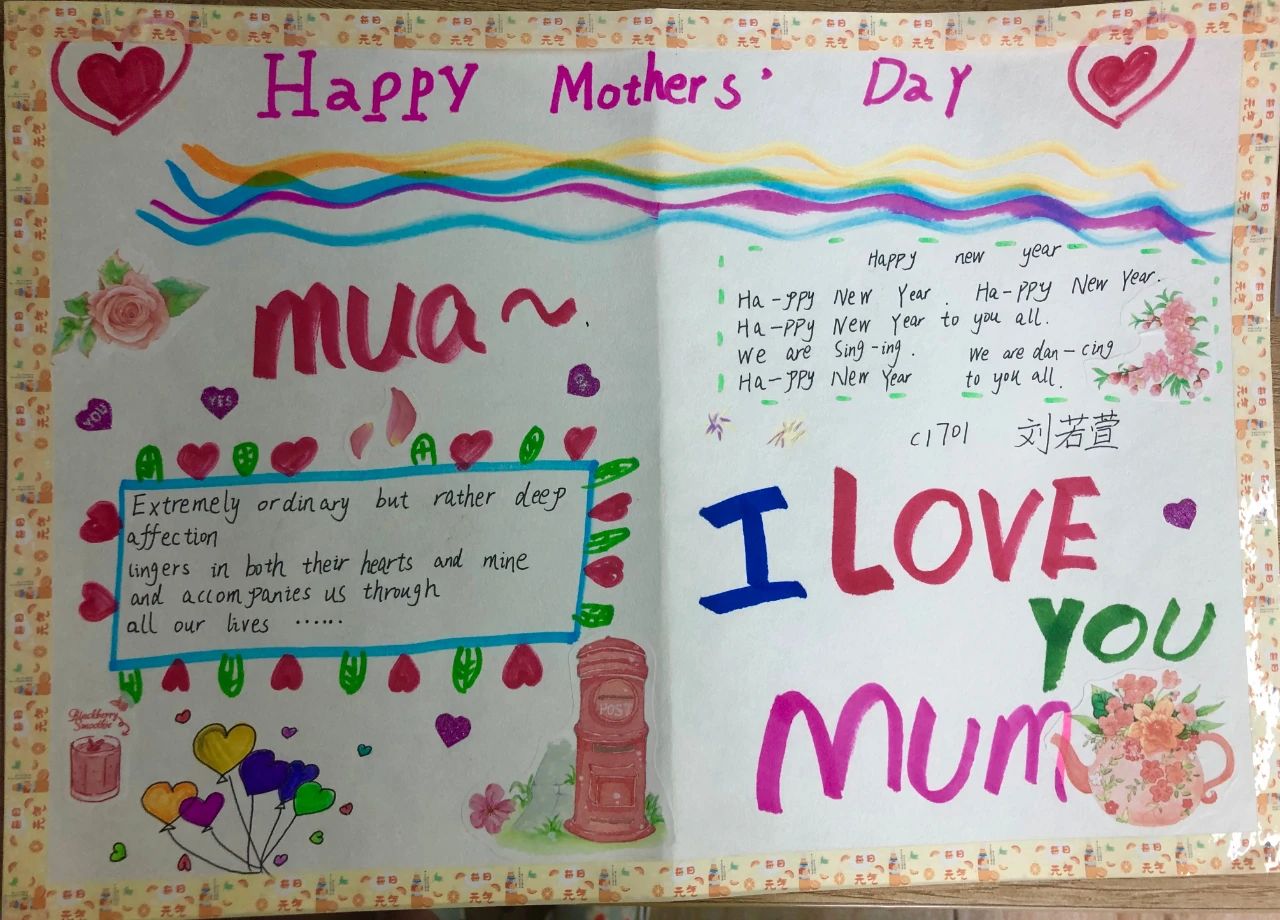 Happy Mothers' Day
mua~.
YOU
YES
Extremely ordinary but rather deep
affection
lingers in both their hearts and mine
and accompanies us through
all our lives ······
Blackberry
Smoothie
POST
Happy new year
Ha-ppy New Year. Ha-ppy New Year.
Ha-ppy New Year to you all.
We are Sing-ing. We are dan-cing
Ha-ppy New Year to you all.
C1701 刘若萱
I LOVE
YOU
MUM
每日
元气